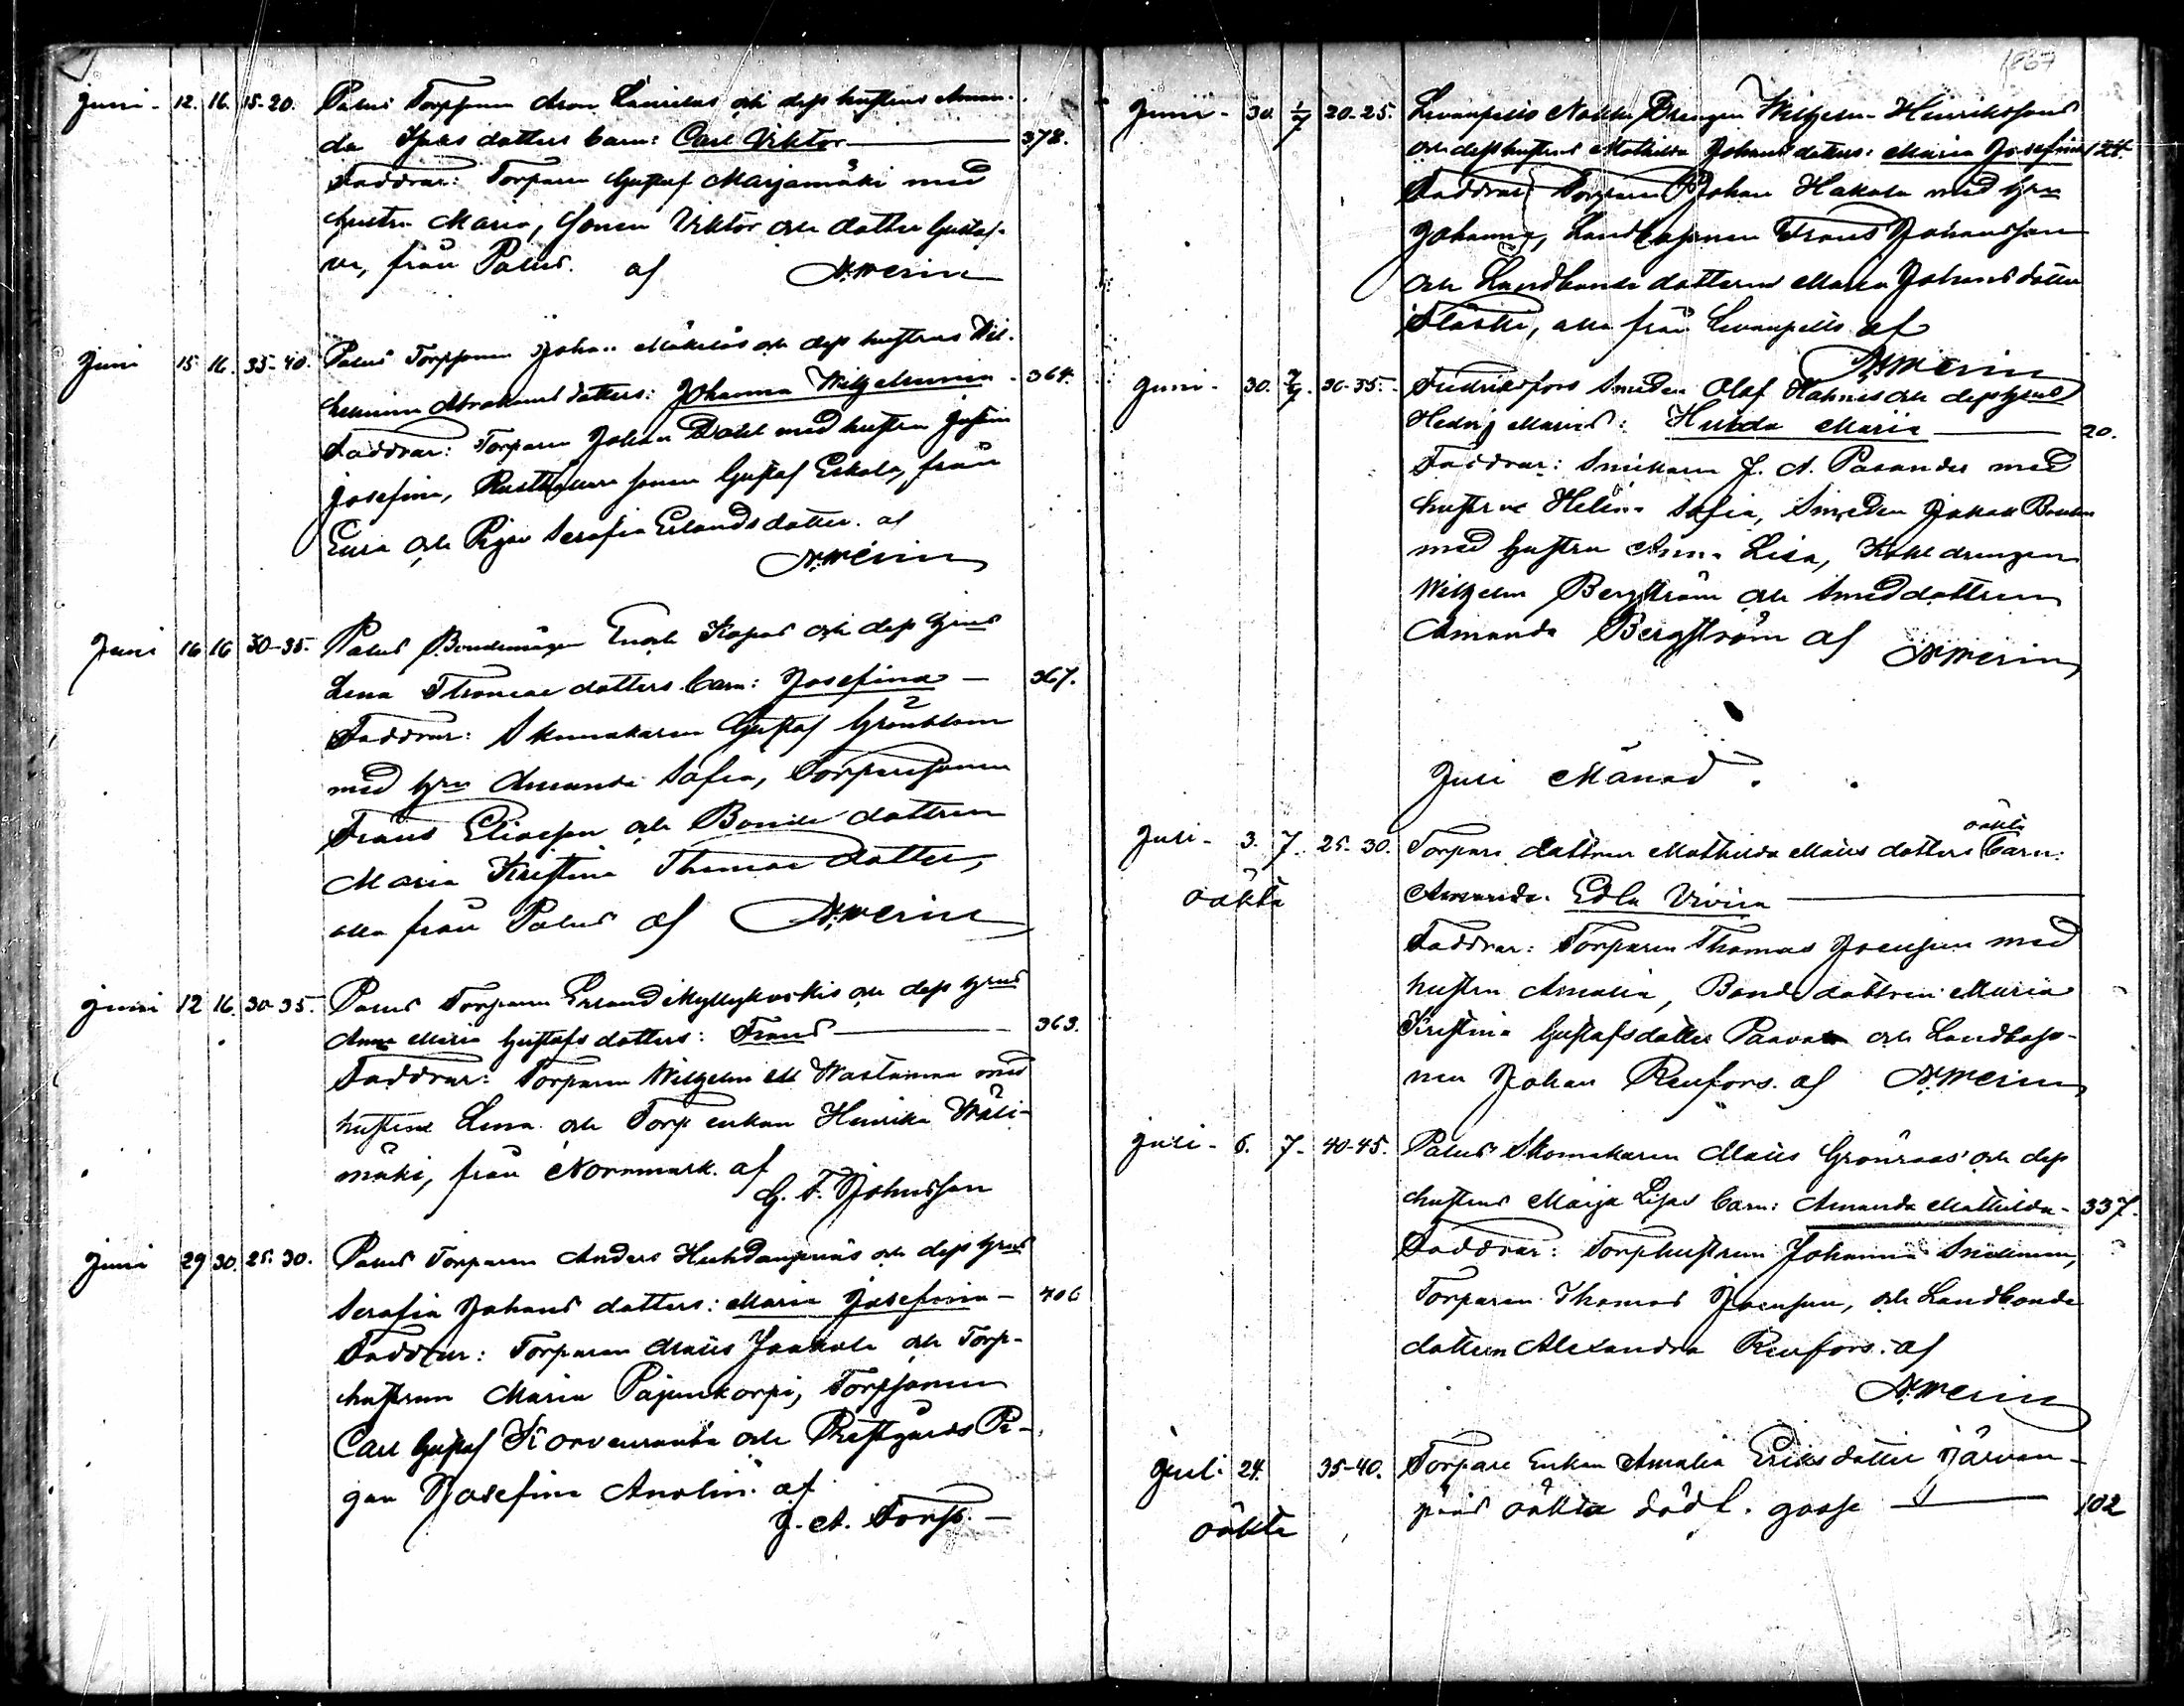 juni - 12. 16. 15-20. Palus Torpsonen Aron Laurilas och dess hustrus Aman-
da Isaksdotters barn: Carl Viktor 378.
Faddrar: Torparen Gustaf Marjamäki med
hustru Maria, Sonen Viktor och dotter Gustaf-
va, från Palus. af N. Merin
Juni 15 16. 35-40. Palus Torpsonen Johan Mäkeläs och dess hustrus Wil-
helmina Abrahamsdotters: Johanna Wilhelmina - 364.
Faddrar: Torparen Johan Dahl med hustru
Josefina, Rusthållare sonen Gustaf Eskola, från
Eura och Pigan Serafia Erlandsdotter. af
N. Merin
Juni 16 16 30-35. Palus Bondemågen Enok Kopas och dess Hrus
Lena Thomae dotters barn: Josefina - 367.
Faddrar: Skomakaren Gustaf Grönblom
med Hru Amanda Sofia, Torparesonen
Frans Eliasson och Bonde dottren
Maria Kristina Thomae dotter,
alla från Palus af N. Merin
juni 12 16. 30-35. Palus Torparen Erland Myllykoskis och dess Hrus
Anna Maria Gustafsdotters: Frans 363.
Faddrar: Torparen Wilhelm med
hustrun Lena och Torp enkan Henrika Wäli-
mäki, från Norrmark. af
G. F. Johnsson
Juni 29 30. 25-30. Palus Torparen Anders och dess Hrus
Serafia Johans dotters: Maria Josefina - 406
Faddrar: Torparen Matts Jaakola och Torp-
hustrun Maria Pajunkorpi, Torpsonen
Carl Gustaf Korvenranta och Prestgårds Pi-
gan Josefina Anolin. af
J. A. Torpp. -
1867
Juni - 30. 1/7 20-25. Levanpelto Nokka Drengen Wilhelm Henrikssons
och dess hustrus Mathilda Johansdotters: Maria Josefina 124.
Faddrar: Torparen Johan Hakala med Hru
Johanna, Landbosonen Frans Johansson
och Landbonde dottren Maria Johansdotter
alla från Levanpelto af
N. Merin
Juni - 30. 7/7. 30-35. Fredriksfors Smeden Olof Hahnes och dess Hrus
Hedvig Marias: Hulda Maria 20.
Faddrar: Snickaren J. A. Pasander med
hustrun Helena Sofia, Smeden Jakob
med hustru Anna Lisa, Kohldrengen
Wilhelm Bergström och Smeddottren
Amanda Bergström af N. Merin
Juli Månad.
Juli - 3. 7. 25-30. Torpare dottren Mathilda Matts dotters oäkta barn:
oäkta Amanda. Edla Vivira
Faddrar: Torparen Thomas Joensuu med
hustru Amalia, Bonde dottren Maria
Kristina Gustafsdotter Paavola och Landboso-
nen Johan Renfors. af N. Merin
juli - 6. 7. 40-45. Palus Skomakaren Matts Grönroos' och dess
hustrus Maija Lisas barn: Amanda Mathilda - 337.
Faddrar: Torphustrun Johanna
Torparen Thomas Joensuu, och Landbonde
dottern Alexandra Renfors. af
N. Merin
Juli 24. 35-40. Torpare Enkan Amalia Eriksdotter Järven-
oäkta pääs oäkta dödf. gosse 102